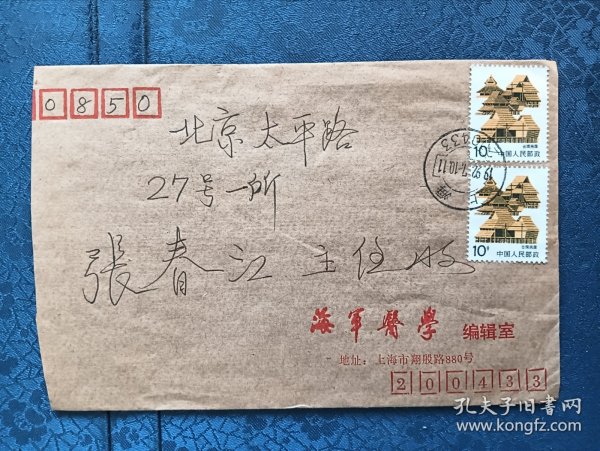 0850
北京太平路
27号一所
張春江主任收
海軍醫學 编辑室
地址：上海市翔殷路880号
200433
10分
中国人民邮政
10分
中国人民邮政
上海
1992.7.10.11
孔夫子旧书网
www.kongfz.com